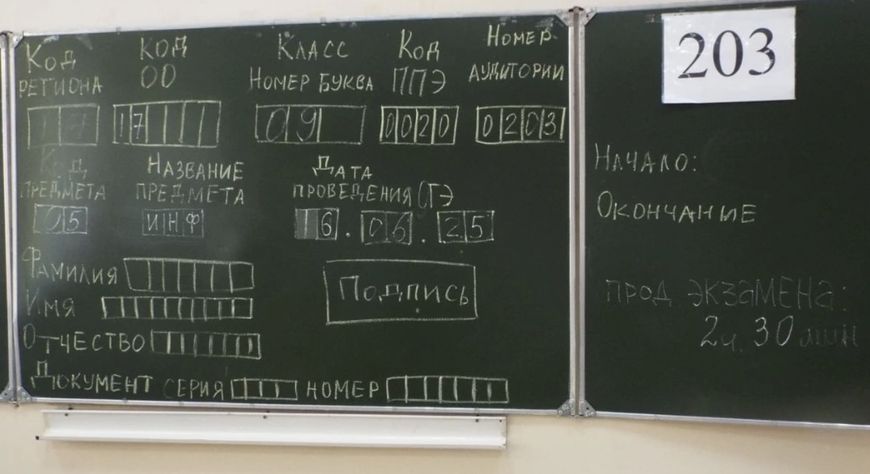 Код региона
Код ОО
Класс
Номер Буква
Код ППЭ
Номер аудитории
17
17
09
0020
0203
Код предмета
Название предмета
Дата проведения ГЭ
05
ИНФ
16.06.25
Фамилия
Имя
Отчество
Подпись
Документ серия номер
203
Начало:
Окончание
прод экзамена:
2ч. 30 мин